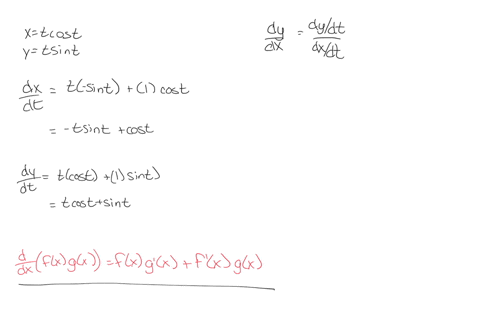 x=tcost
y=tsint
dy/dx = (dy/dt)/(dx/dt)
dx/dt = t(-sint) + (1) cost
= -tsint +cost
dy/dt = t(cost) +(1)sint)
= tcost+sint
d/dx (f(x)g(x)) = f(x)g'(x) + f'(x)g(x)